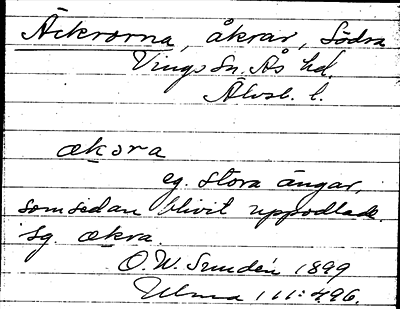 Äckrorna, åkrar, Södra
Vings sn. Ås hd.
Älvsb. l.
ækora
eg. stora ängar,
som sedan blivit uppodlade.
sg. ækra.
O.W. Sundén 1899
Ulma 111:496.